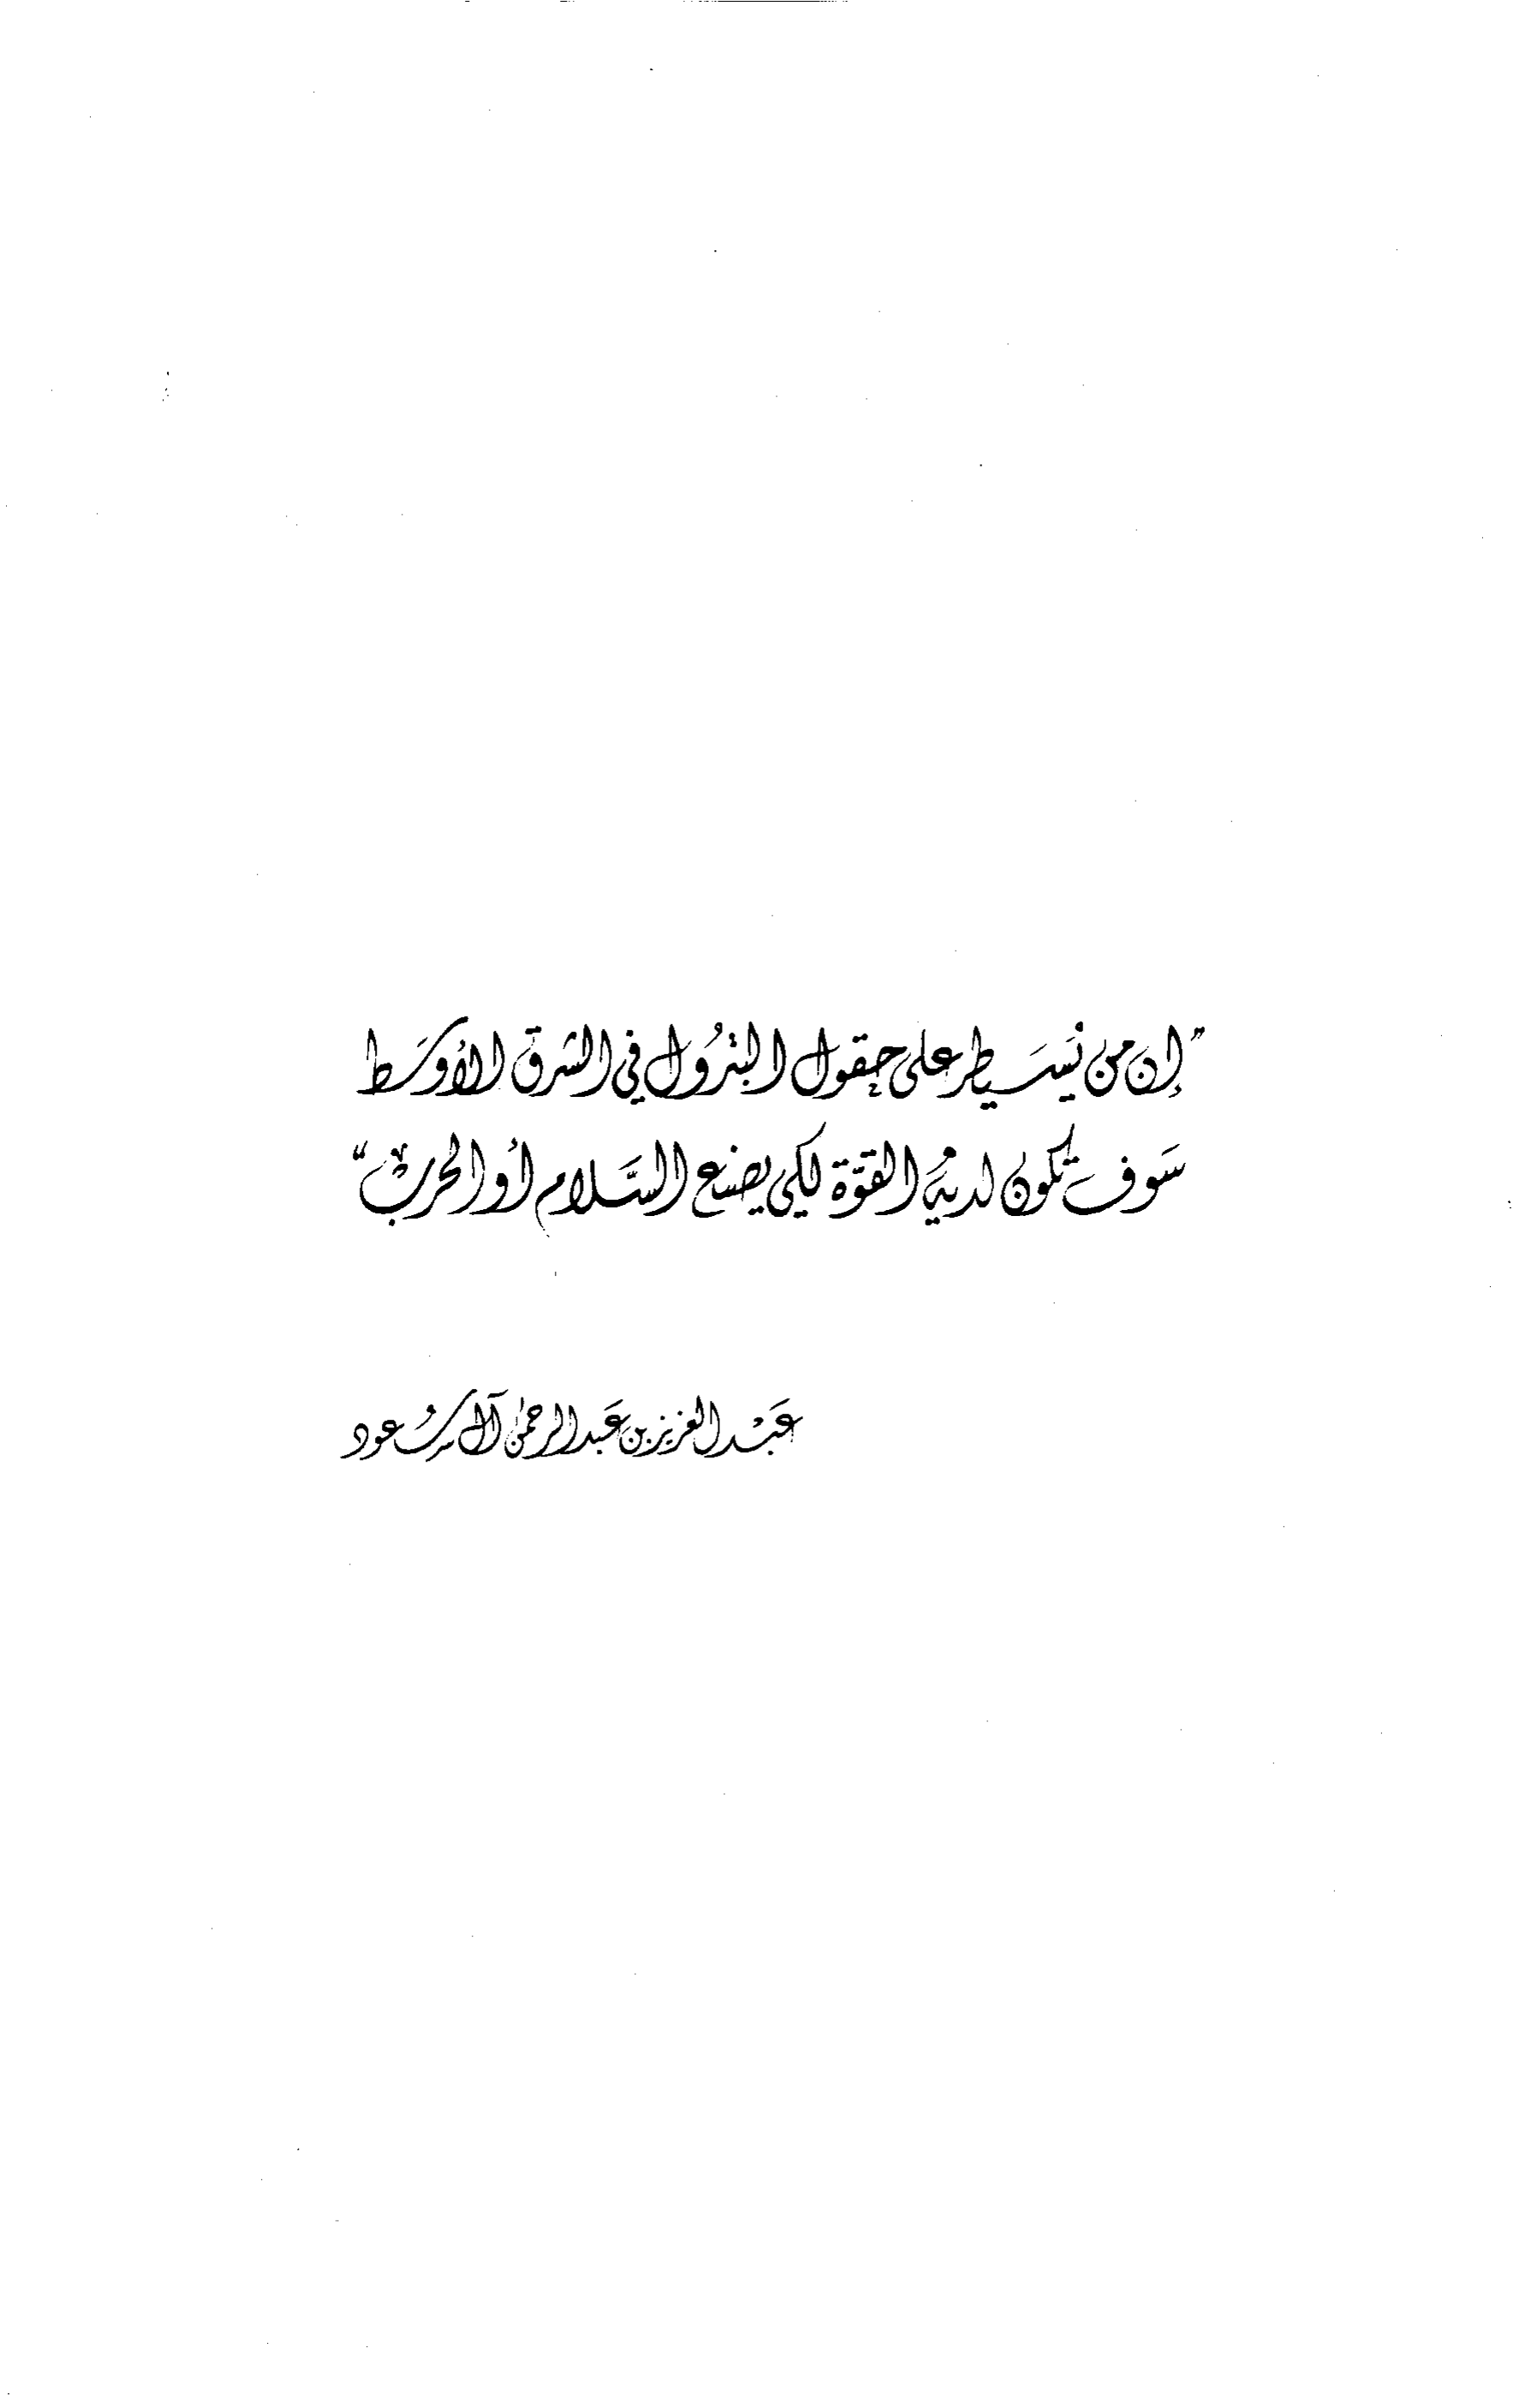 "إن من يسيطر على حقول البترول في الشرق الأوسط
سوف تكون لديه القوة لكي يصنع السلام أو الحرب"
عبد العزيز بن عبد الرحمن آل سعود